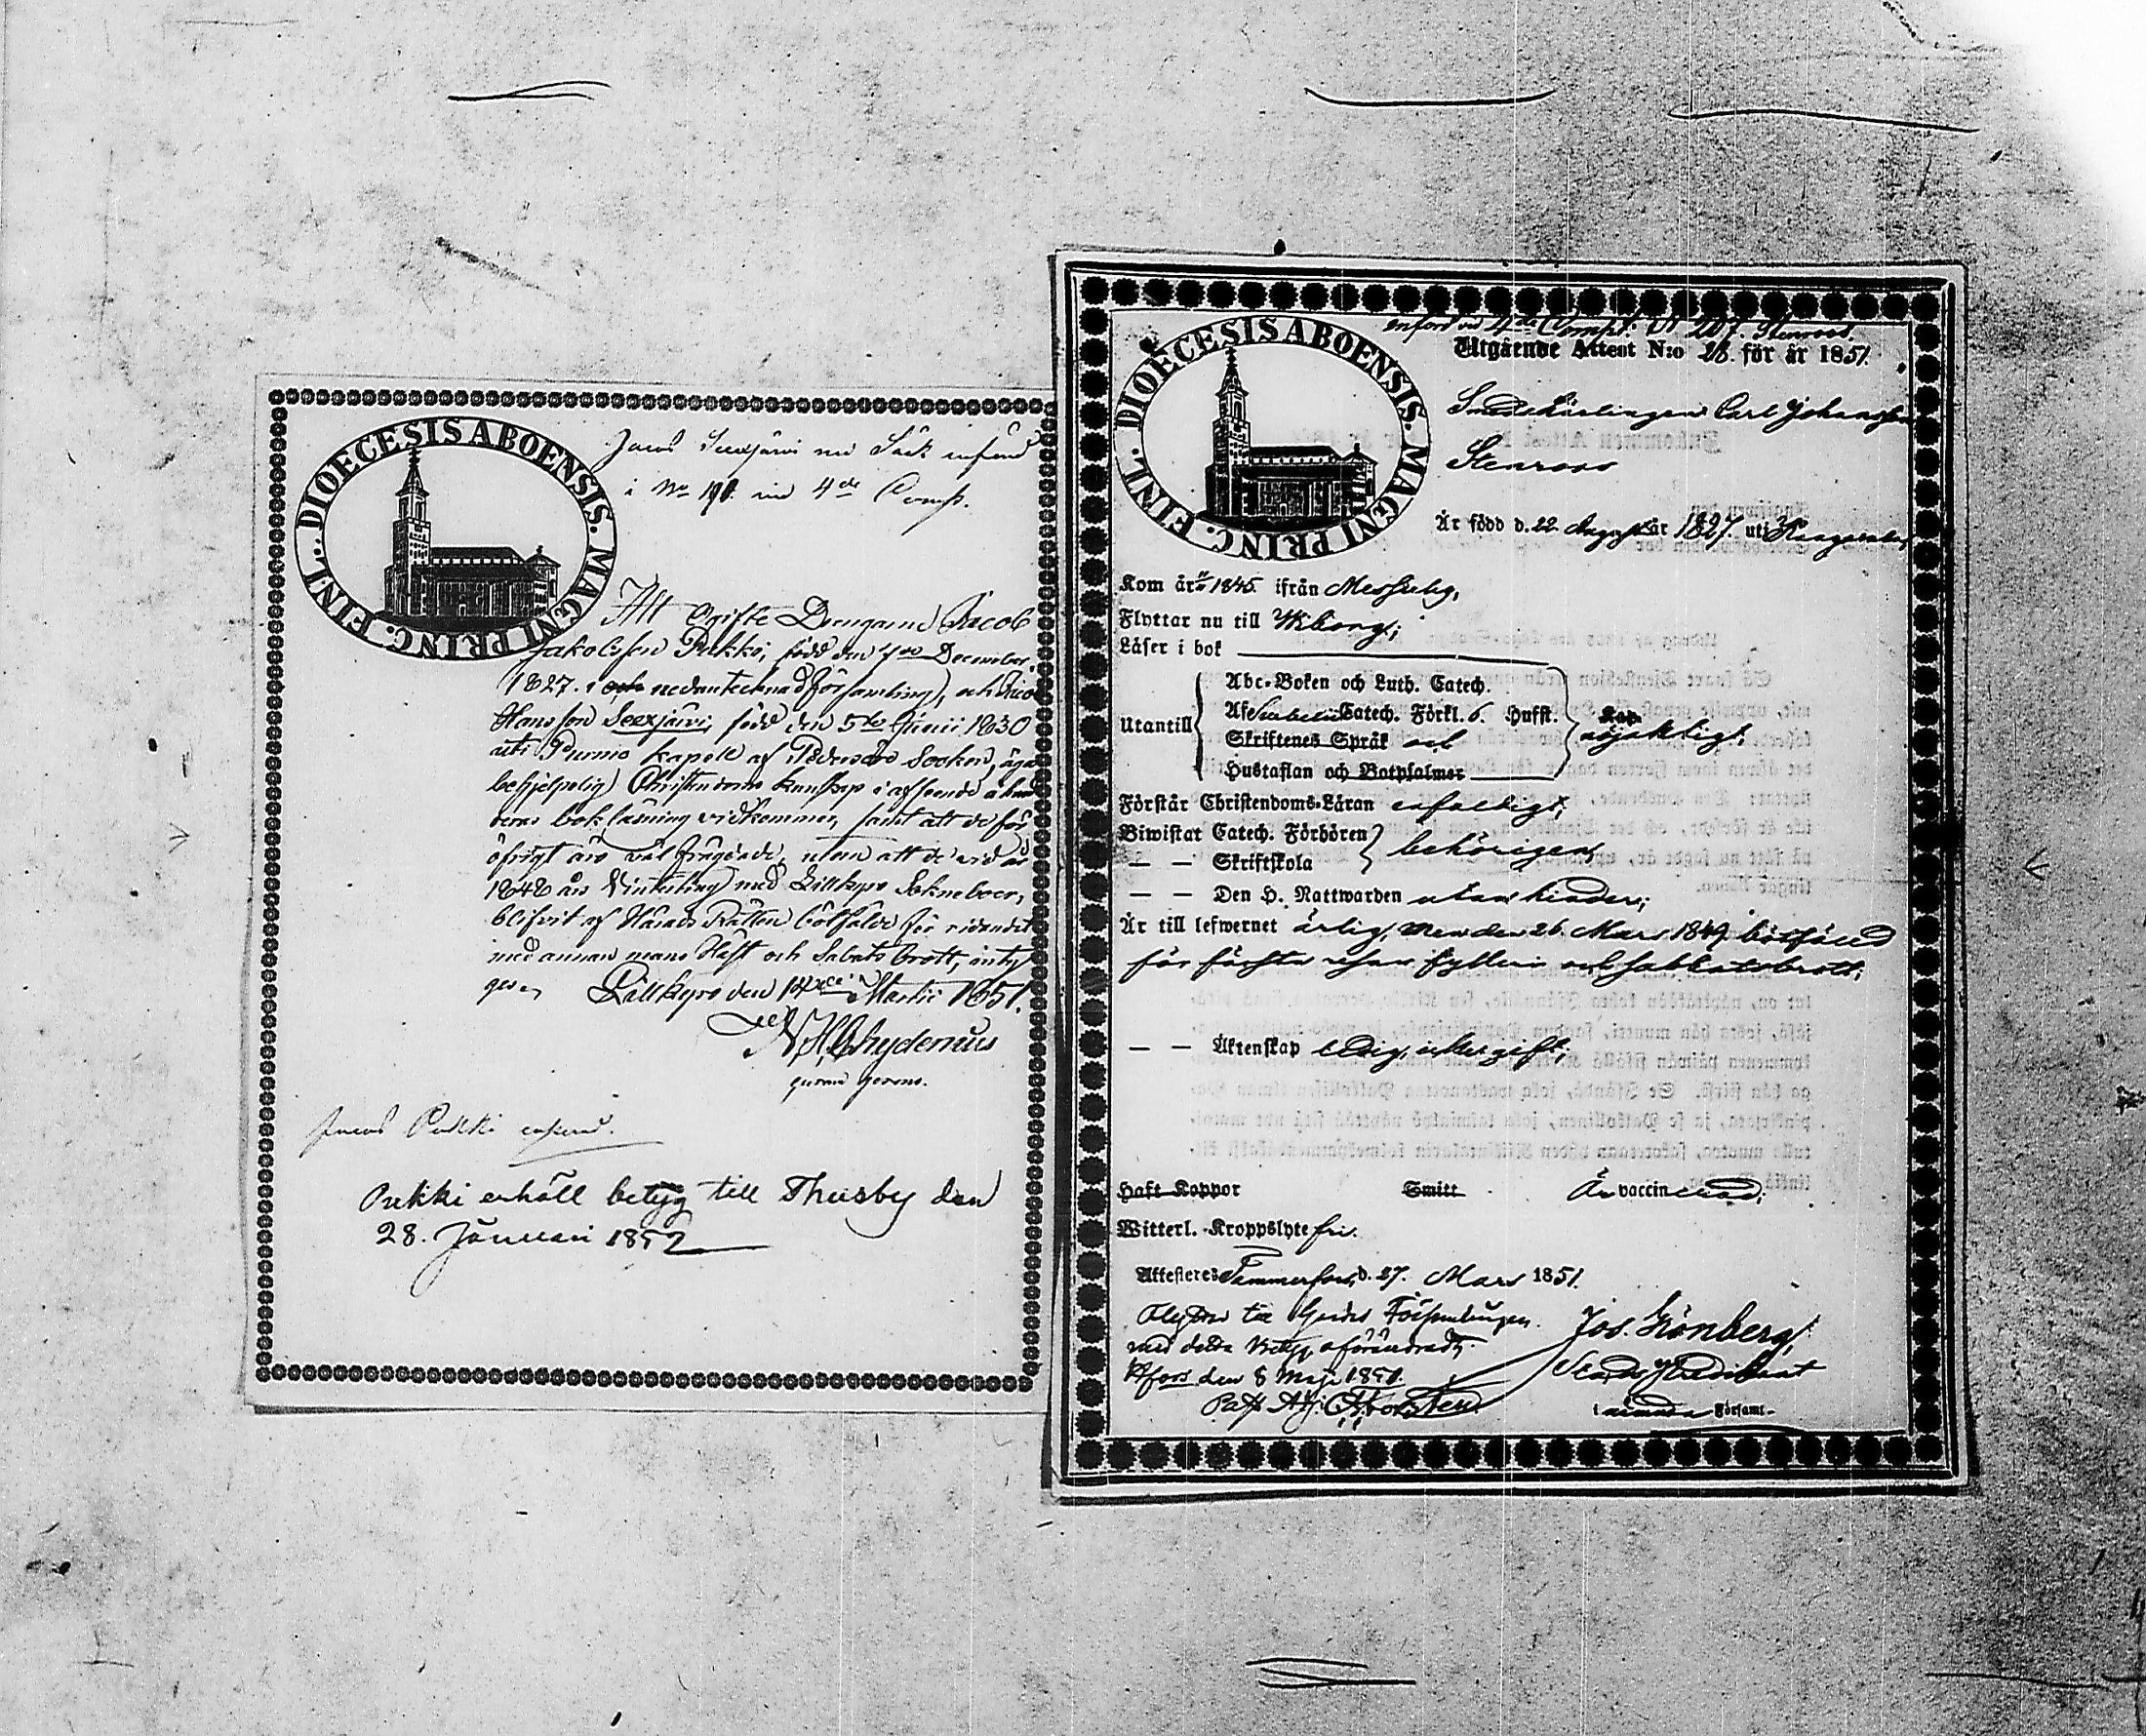 DIOECESIS ABOENSIS. MAGNI PRINC. FINL.
Jacob Seexjärvi Säck införd
i No 198 vid 4de Comp.
Att Ogifte Drengarne Jacob
Jakobsson Pukki, född den 7de December
1827 i nedantecknad församling, och
Hansson Seexjärvi, född den 5te Junii 1830
uti Purmo kapell af Pedersöre Socken, äga
behjelpelig Christendoms kunskap i afseende å
deras bokläsning vidkommer, samt att de för
öfrigt äro väl frägdade, utom att de vid
1848 års Vinterting med Lillkyro Sokneboer,
blifvit af Härads Rätten bötfälde för ridandet
med annan mans Häst och Sabats brott, inty
gas. Lillkyro den Martii 1851.
Chydenius
curam gerens.
Jacob Pukki införd.
Pukki erhöll betyg till Thusby den
28. Januari 1852
DIOECESIS ABOENSIS. MAGNI PRINC. FINL.
införd vid 4de Comp: N 207 Stenroos
Utgående Attest N:o 28. för år 1851.
Smedslärlingen Carl Johansson
Stenroos
Är född d. 22 Augusti år 1827. uti Kangasala,
Kom år 1845. ifrån Messuby,
Flyttar nu till Wiborg;
Läser i bok
Utantill
Abc-Boken och Luth. Catech.
Af Catech. Förkl. 6. Hufst.
Skriftenes Språk och
Hustaflan och Botpsalmer
nöjaktigt,
Förstår Christendoms-Läran enfaldigt;
Biwistat Catech. Förhören
— — Skriftskola
behörigen,
— — Den H. Nattwarden utan hinder;
Är till lefwernet ärlig, men den 26. Mars 1849 bötfälld
för första resan fylleri och sabbatsbrott;
— — Äktenskap ledig, icke gift;
Haft Koppor Smitt Är vaccinerad;
Witterl. Kroppslyte fri.
Attesteres Tammerfors, d. 27. Mars 1851.
Flyttar till Församlingen
med detta Betyg oförändradt.
Hfors den 8 Maji 1851.
Jos. Grönberg,
Stads Predikant
i nämnda Församl.